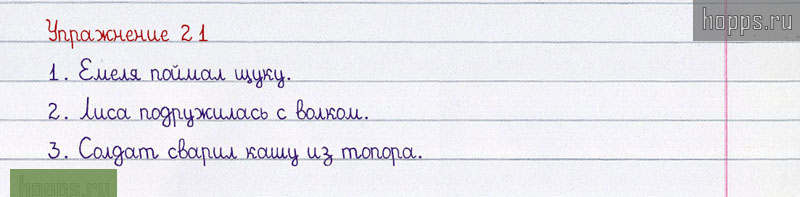 hopps.ru
Упражнение 21
1. Емеля поймал щуку.
2. Лиса подружилась с волком.
3. Солдат сварил кашу из топора.
hopps.ru